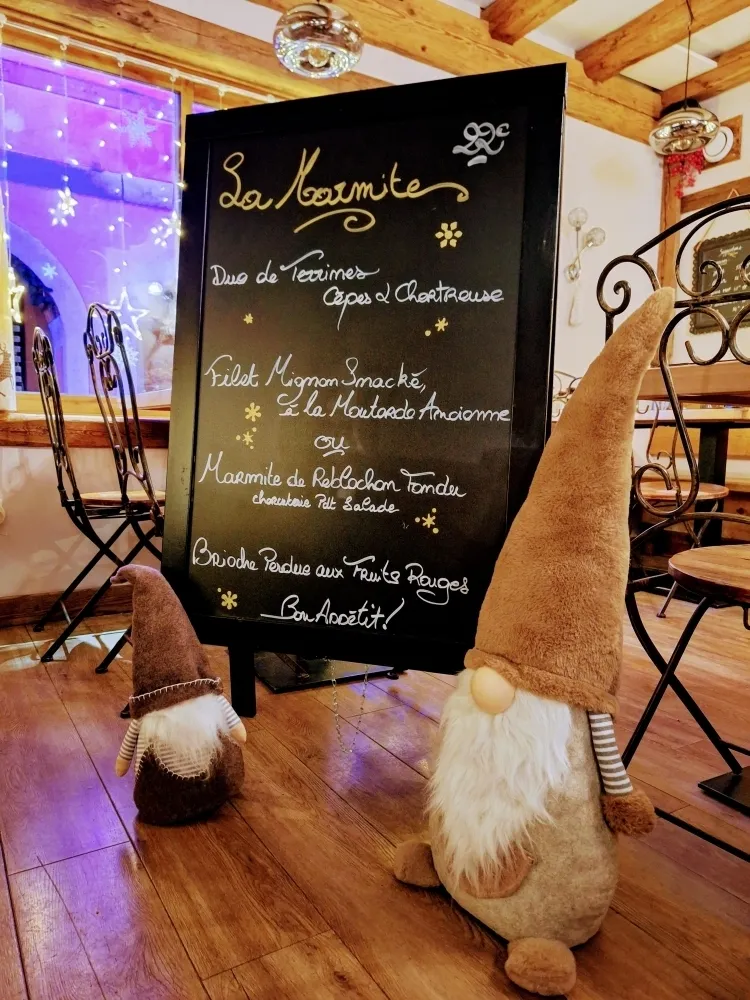 22€
La Marmite
Duo de Terrines
Cèpes & Chartreuse
Filet Mignon Snacké,
à la Moutarde Ancienne
ou
Marmite de Reblochon Fondu
charcuterie Pdt Salade
Brioche Perdue aux Fruits Rouges
Bon Appétit!